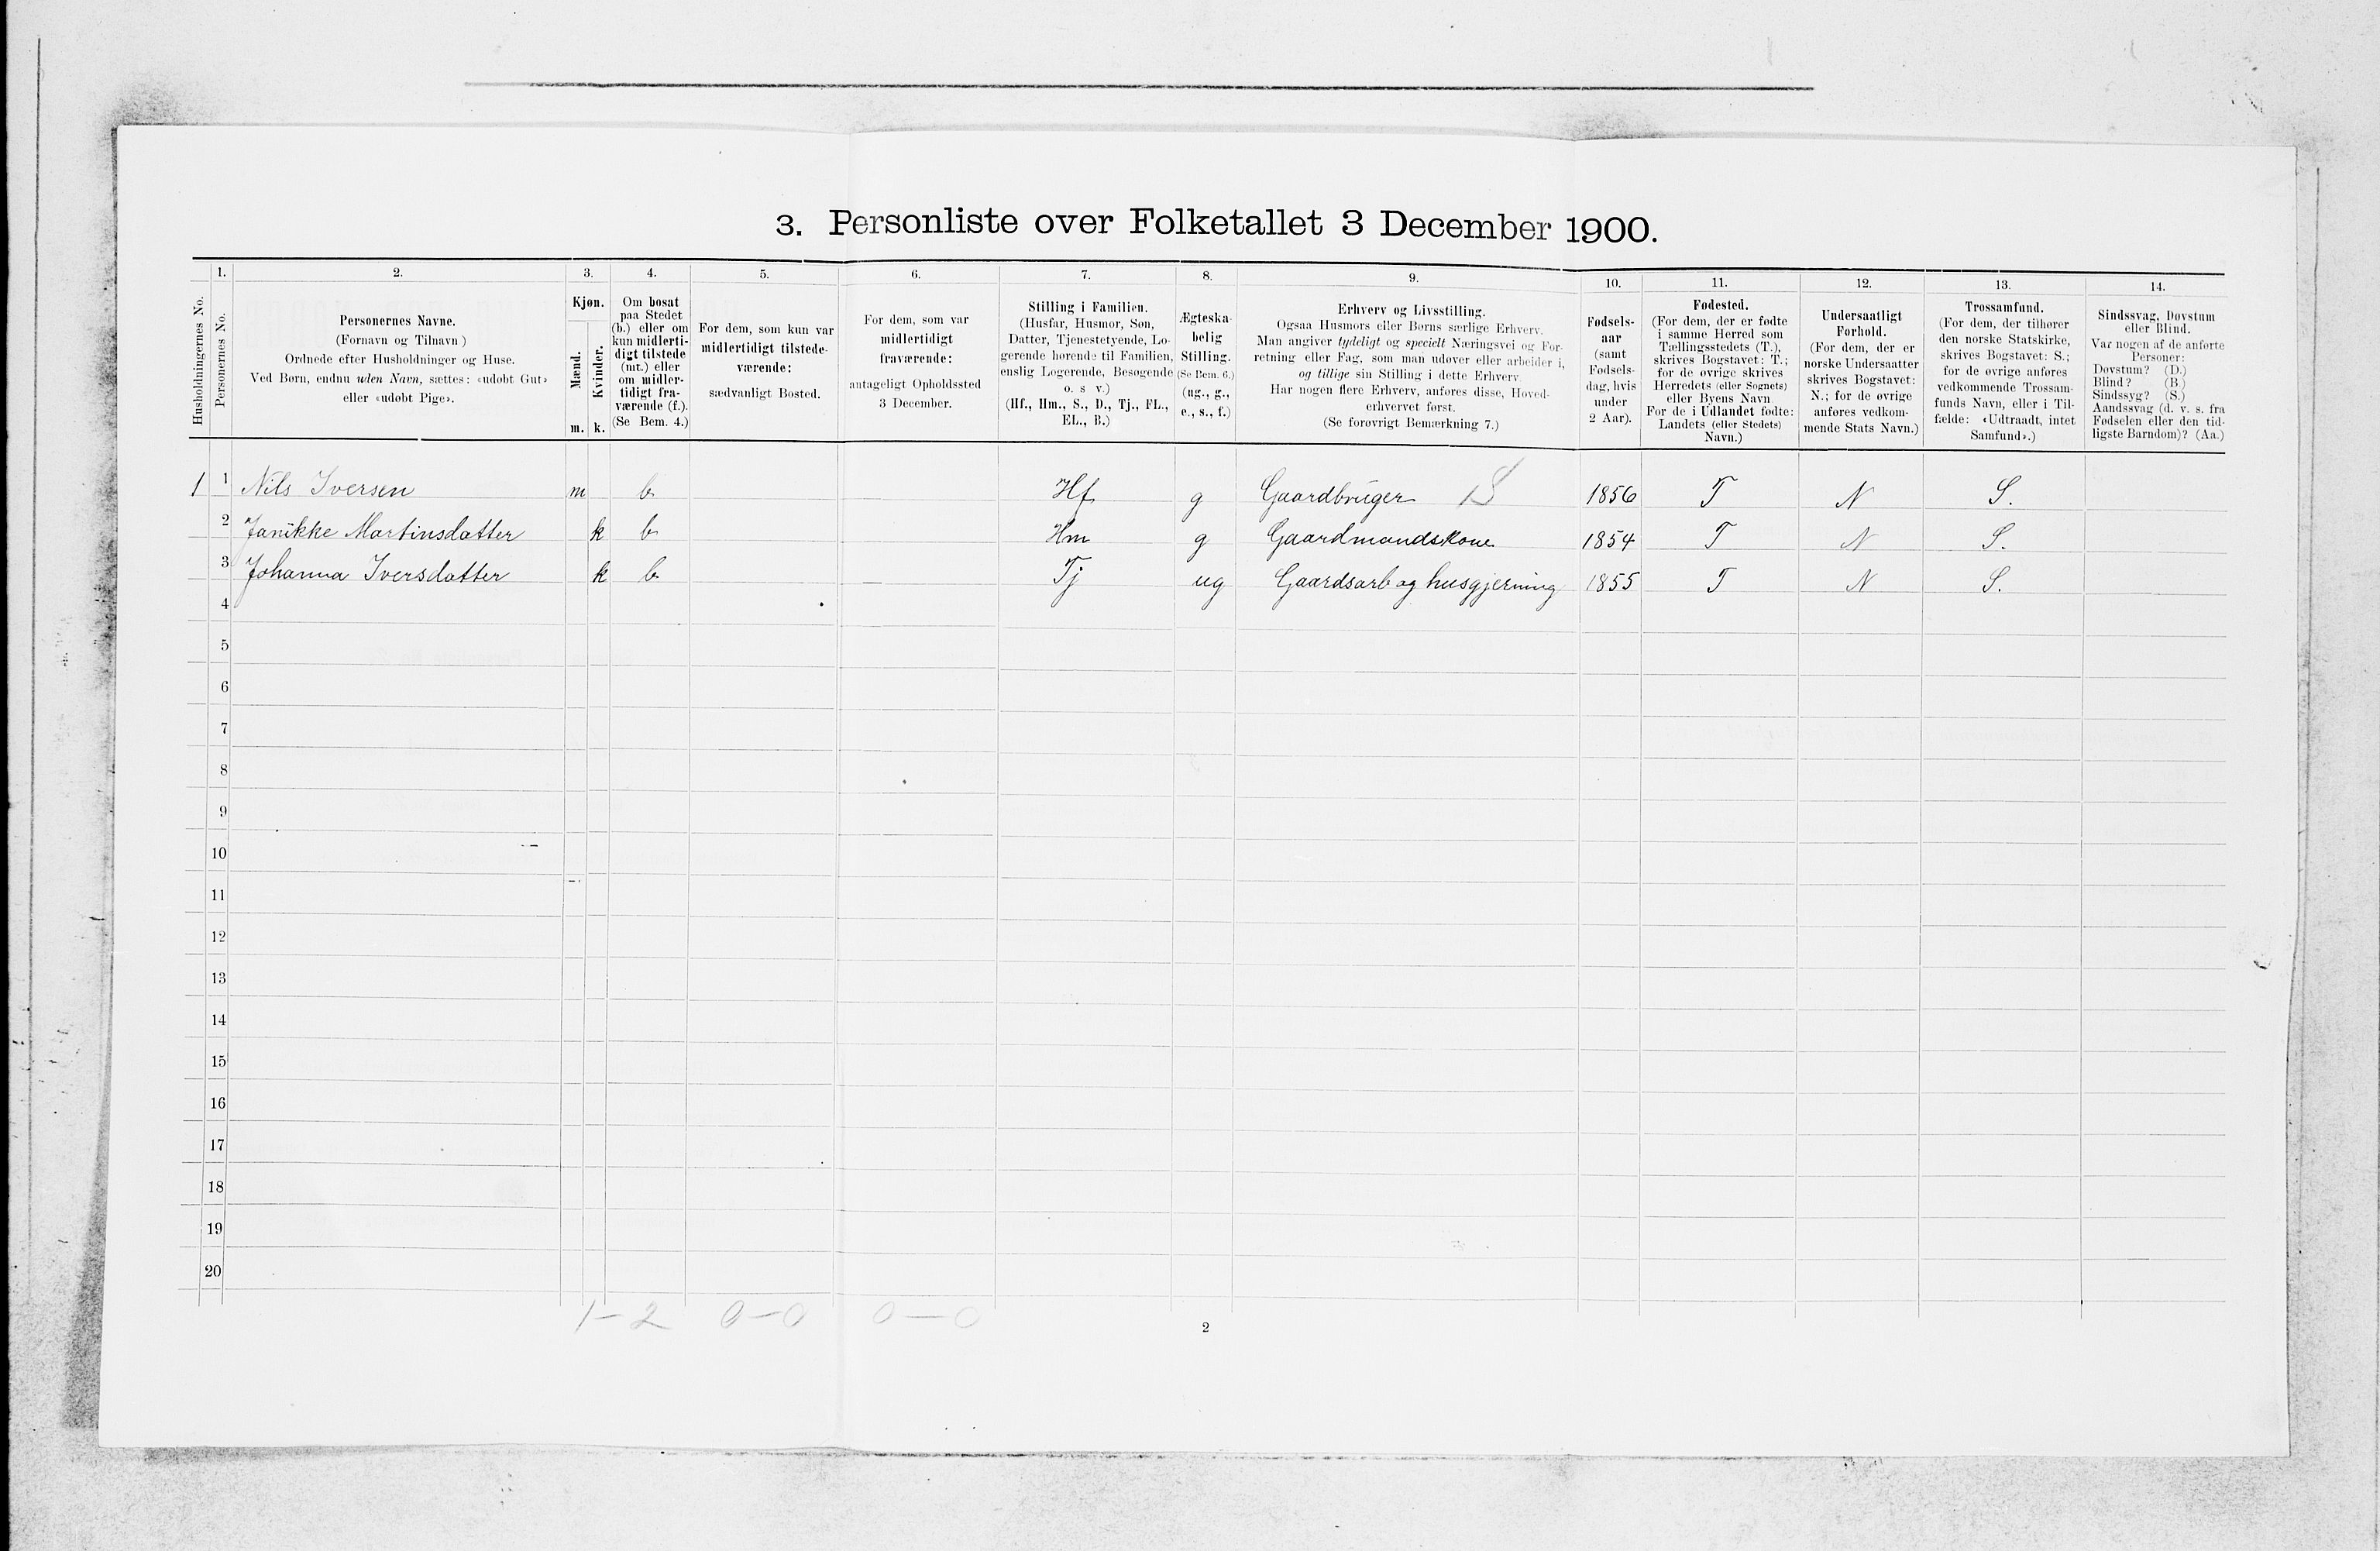 3. Personliste over Folketallet 3 December 1900.
1. 2. 3. 4. 5. 6. 7. 8. 9. 10. 11. 12. 13. 14.
Husholdningernes No.
Personernes No.
Personernes Navne.
(Fornavn og Tilnavn )
Ordnede efter Husholdninger og Huse.
Ved Børn, endnu uden Navn, sættes: «udøbt Gut»
eller «udøbt Pige».
Kjøn.
Mænd.
Kvinder.
m. k.
Om bosat
paa Stedet
(b.) eller om
kun midlerti-
digt tilstede
(mt.) eller
om midler-
tidigt fra-
værende (f.).
(Se Bem. 4.)
For dem, som kun var
midlertidigt tilstede-
værende:
sædvanligt Bosted.
For dem, som var
midlertidigt
fraværende:
antageligt Opholdssted
3 December.
Stilling i Familien.
(Husfar, Husmor, Søn,
Datter, Tjenestetyende, Lo-
gerende hørende til Familien,
enslig Logerende, Besøgende
o. s v.)
(Hf., Hm., S., D., Tj., FL.,
EL., B.)
Ægteska-
belig
Stilling.
(Se Bem. 6.)
(ug., g.,
e., s., f.)
Erhverv og Livsstilling.
Ogsaa Husmors eller Børns særlige Erhverv.
Man angiver tydeligt og specielt Næringsvei og For-
retning eller Fag, som man udøver eller arbeider i,
og tillige sin Stilling i dette Erhverv.
Har nogen flere Erhverv, anføres disse, Hoved-
erhvervet først.
(Se forøvrigt Bemærkning 7.)
Fødsels-
aar
(samt
Fødsels-
dag, hvis
under
2 Aar).
Fødested.
(For dem, der er fødte
i samme Herred som
Tællingsstedets (T.),
skrives Bogstavet: T.;
for de øvrige skrives
Herredets (eller Sognets)
eller Byens Navn
For de i Udlandet fødte:
Landets (eller Stedets)
Navn.)
Undersaatligt
Forhold.
(For dem, der er
norske Undersaatter
skrives Bogstavet:
N.; for de øvrige
anføres vedkom-
mende Stats Navn.)
Trossamfund.
(For dem, der tilhører
den norske Statskirke,
skrives Bogstavet: S.;
for de øvrige anføres
vedkommende Trossam-
funds Navn, eller i Til-
fælde: «Udtraadt, intet
Samfund».)
Sindssvag, Døvstum
eller Blind.
Var nogen af de anførte
Personer:
Døvstum? (D.)
Blind? (B.)
Sindssyg? (S.)
Aandssvag (d. v. s. fra
Fødselen eller den tid-
ligste Barndom)? (Aa.)
1 1 Nils Iversen m b Hf g Gaardbruger 1S 1856 T N S.
2 Janikke Martinsdatter k b Hm g Gaardmandskone 1854 T N S.
3 Johanna Iversdatter k b Tj ug Gaardsarb og husgjerning 1855 T N S.
4
5
6
7
8
9
10
11
12
13
14
15
16
17
18
19
20
1-2 0-0 0-0
2